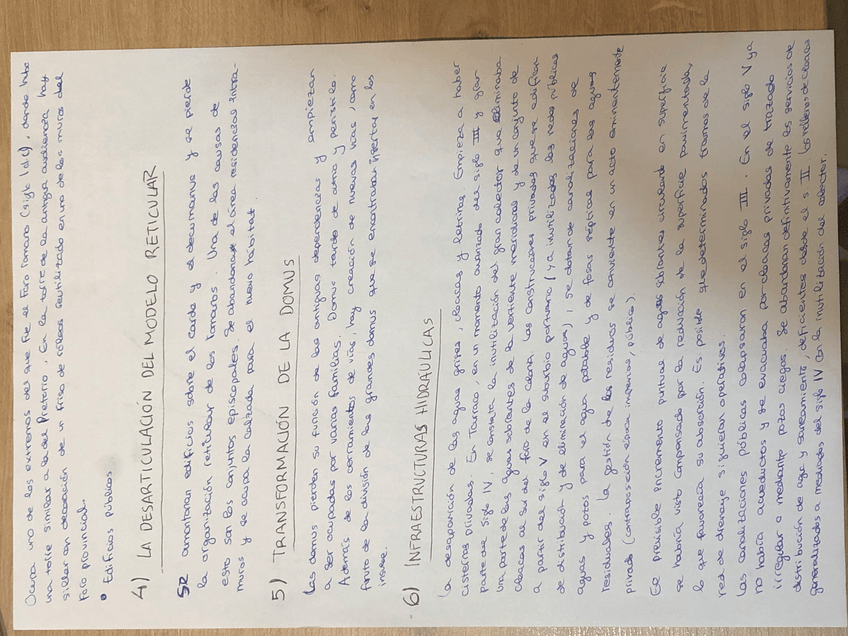 Ocupa uno de los extremos del que fue el Foro romano (siglo I d.C), donde hubo
una torre similar a la del Pretorio. En la torre de la antigua audiencia hay
sillar con decoración de un friso de róleos reutilizado en uno de los muros del
Foro provincial.
• Edificios públicos
4) LA DESARTICULACIÓN DEL MODELO RETICULAR
Se amontonan edificios sobre el cardo y el decumanus y se pierde
la organización reticular de los romanos. Una de las causas de
esto son los conjuntos episcopales. Se abandona el área residencial intra-
muros y se ocupa la calzada para el nuevo hábitat.
5) TRANSFORMACIÓN DE LA DOMUS
Las domus pierden su función de las antiguas dependencias y empiezan
a ser ocupadas por varias familias. Domus tardía de atrio y peristilo.
Además de los cerramientos de vías, hay creación de nuevas vías, como
fruto de la división de las grandes domus que se encontraban insertas en las
insulae.
6) INFRAESTRUCTURAS HIDRÁULICAS
La desaparición de las aguas grises, cloacas y letrinas. Empieza a haber
cisternas privadas. En Tarraco, en un momento avanzado del siglo III y gran
parte del siglo IV, se constata la inutilización del gran colector que eliminaba
una parte de las aguas sobrantes de la vertiente meridional y de un conjunto de
cloacas al sur del foro de la colonia. Las construcciones privadas que se edifican
a partir del siglo V en el suburbio portuario (ya inutilizadas las redes públicas
de distribución y de eliminación de aguas), se dotan de canalizaciones de
aguas y pozos para el agua potable y de fosas sépticas para las aguas
residuales. La gestión de los residuos se convierte en un acto eminentemente
privado (contraposición época imperial, pública).
El previsible incremento puntual de aguas sobrantes circulando en superficie
se habría visto compensado por la reducción de la superficie pavimentada,
lo que favorecía su absorción. Es posible que determinados tramos de la
red de drenaje siguieran operativos.
Las canalizaciones públicas colapsaron en el siglo III. En el siglo V ya
no había acueductos y se evacuaba por cloacas privadas de trazado
irregular o mediante pozos ciegos. Se abandonan definitivamente los servicios de
distribución de agua y saneamiento, deficientes desde el s III. Los rellenos de cloacas
generalizados a mediados del siglo IV con la inutilización del colector.